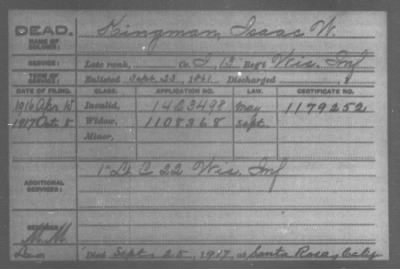 DEAD. Kingman, Isaac W.
NAME OF SOLDIER:
SERVICE: Late rank, Co. I, 12 Reg't Wis. Inf
TERM OF SERVICE: Enlisted Sept. 23, 1861 Discharged
DATE OF FILING. CLASS. APPLICATION NO. LAW. CERTIFICATE NO.
1916 Apr Invalid, 1423498 May 1179252
1917 Oct 8 Widow, 1108368 Sept.
Minor,
1" Lt C 22 Wis. Inf
ADDITIONAL SERVICES:
REMARKS:
Died Sept. 25, 1917, at Santa Rosa, Calif